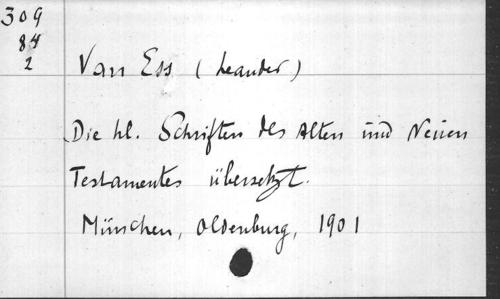 309
84
2
Van Ess (Leander)
Die hl. Schriften des Alten und Neuen
Testamentes übersetzt.
München, Oldenburg, 1901